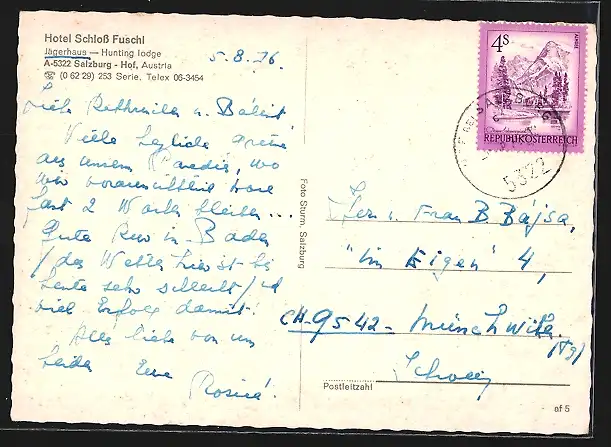 Hotel Schloß Fuschl
Jägerhaus — Hunting lodge
A-5322 Salzburg - Hof, Austria
☎ (0 62 29) 253 Serie. Telex 06-3454
5.8.76.
Liebe
Viele herzliche Grüsse
aus unserem Paradies, wo
wir voraussichtlich
fast 2 Wochen bleiben ...
Gute Kur in Baden
(das Wetter hier ist bis
heute sehr schlecht) u.
viel Erfolg damit!
Alles liebe von uns
beiden Eure
4S
ALMSEE
REPUBLIK ÖSTERREICH
5322
Foto Sturm, Salzburg
Herrn u. Frau B. Bájsa,
"Im Eigen" 4,
CH-9542- Münchwilen
(Tg)
Schweiz
Postleitzahl
af 5